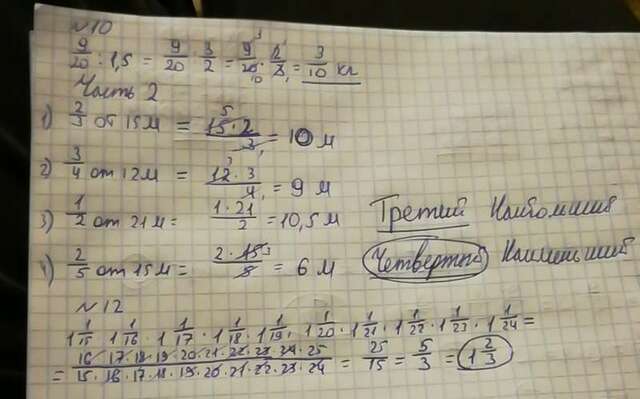 №10
9/20 : 1,5 = 9/20 : 3/2 = 9/20 · 2/3 = 3/10 кг
Часть 2
1) 2/3 от 15м = 15·2/3 = 10 м
2) 3/4 от 12м = 12·3/4 = 9 м
3) 1/2 от 21м = 1·21/2 = 10,5 м Третий Наибольший
4) 2/5 от 15м = 2·15/5 = 6 м Четвертый Наименьший
№12
1 1/15 · 1 1/16 · 1 1/17 · 1 1/18 · 1 1/19 · 1 1/20 · 1 1/21 · 1 1/22 · 1 1/23 · 1 1/24 =
= 16·17·18·19·20·21·22·23·24·25/15·16·17·18·19·20·21·22·23·24 = 25/15 = 5/3 = 1 2/3